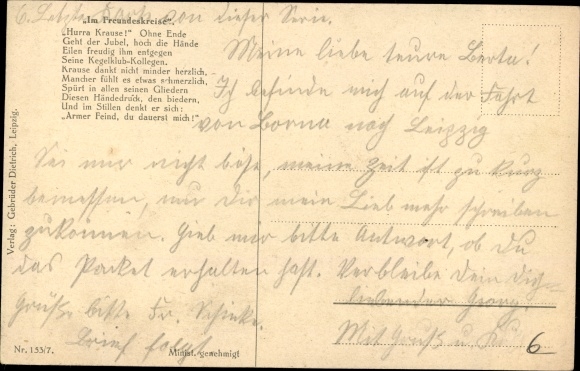 6. Letzte Karte von dieser Serie.
„Im Freundeskreise“.
„Hurra Krause!“ Ohne Ende
Geht der Jubel, hoch die Hände
Eilen freudig ihm entgegen
Seine Kegelklub-Kollegen.
Krause dankt nicht minder herzlich,
Mancher fühlt es etwas schmerzlich,
Spürt in allen seinen Gliedern
Diesen Händedruck, den biedern,
Und im Stillen denkt er sich:
„Armer Feind, du dauerst mich!“
Meine liebe teure Berta!
Ich befinde mich auf der Fahrt
von Borna nach Leipzig
Sei mir nicht böse, meine Zeit ist zu kurz
bemessen, um Dir mein Lieb mehr schreiben
zu können. Gieb mir bitte Antwort, ob Du
das Packet erhalten hast. Verbleibe Dein Dich
liebender Georg.
Grüße bitte Fr. Schinke.
Mit Gruß u. Kuß
Brief folgt
6
Verlag: Gebrüder Dietrich, Leipzig.
Nr. 153/7.
Minist. genehmigt